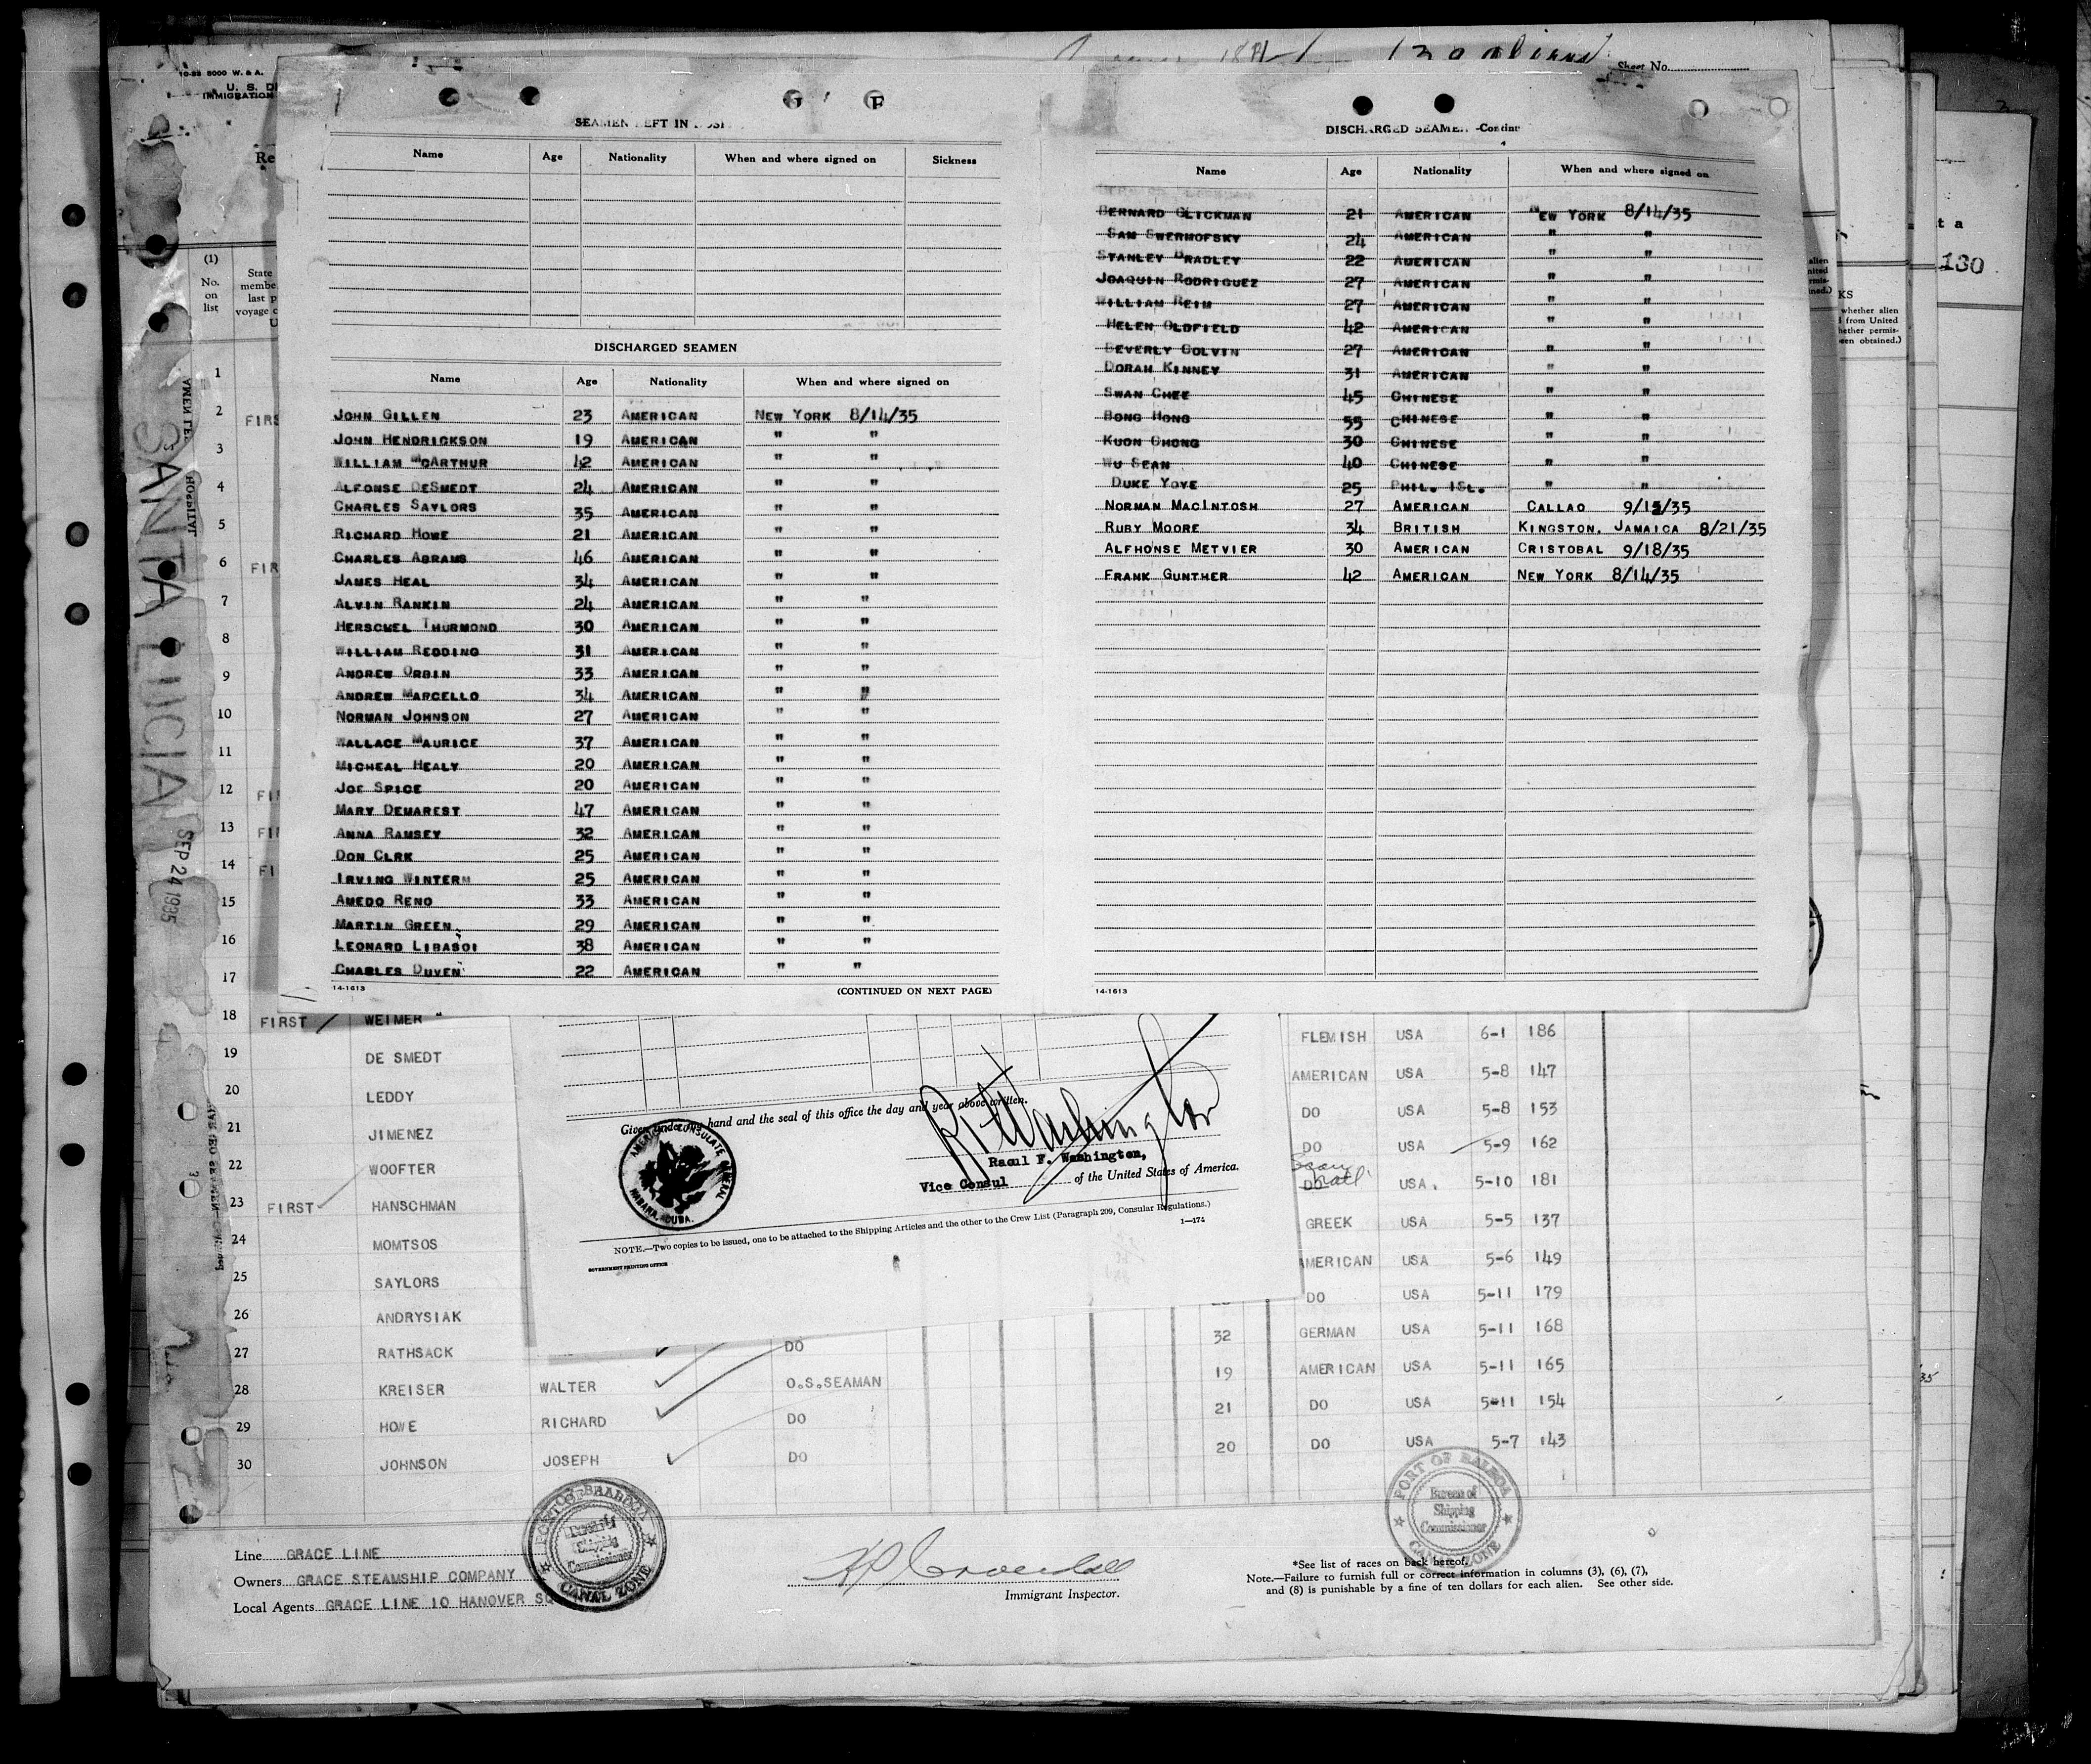 130 aliens
Sheet No.
10-23 5000 W. & A.
U. S. D
IMMIGRATION
Re
SANTA LUCIA
SEP 24 1935
HOSPITAL
(1)
No. on list
SEAMEN LEFT IN
Name Age Nationality When and where signed on Sickness
DISCHARGED SEAMEN
Name Age Nationality When and where signed on
JOHN GILLEN 23 AMERICAN NEW YORK 8/14/35
JOHN HENDRICKSON 19 AMERICAN " "
WILLIAM MCARTHUR 42 AMERICAN " "
ALFONSE DESMEDT 24 AMERICAN " "
CHARLES SAYLORS 35 AMERICAN " "
RICHARD HOWE 21 AMERICAN " "
CHARLES ABRAMS 46 AMERICAN " "
JAMES HEAL 34 AMERICAN " "
ALVIN RANKIN 24 AMERICAN " "
HERSCHEL THURMOND 30 AMERICAN " "
WILLIAM REDDING 31 AMERICAN " "
ANDREW ORBIN 33 AMERICAN " "
ANDREW MARCELLO 34 AMERICAN " "
NORMAN JOHNSON 27 AMERICAN " "
WALLACE MAURICE 37 AMERICAN " "
MICHEAL HEALY 20 AMERICAN " "
JOE SPICE 20 AMERICAN " "
MARY DEMAREST 47 AMERICAN " "
ANNA RAMSEY 32 AMERICAN " "
DON CLRK 25 AMERICAN " "
IRVING WINTERM 25 AMERICAN " "
AMEDO RENO 33 AMERICAN " "
MARTIN GREEN 29 AMERICAN " "
LEONARD LIBASOI 38 AMERICAN " "
CHARLES DUVEN 22 AMERICAN " "
14-1613 (CONTINUED ON NEXT PAGE)
DISCHARGED SEAMEN-Contin
Name Age Nationality When and where signed on
BERNARD GLICKMAN 21 AMERICAN NEW YORK 8/14/35
SAM SWERHOFSKY 24 AMERICAN " "
STANLEY BRADLEY 22 AMERICAN " "
JOAQUIN RODRIGUEZ 27 AMERICAN " "
WILLIAM REIM 27 AMERICAN " "
HELEN OLDFIELD 42 AMERICAN " "
BEVERLY COLVIN 27 AMERICAN " "
DORAH KINNEY 31 AMERICAN " "
SWAN CHEE 45 CHINESE " "
BONG HONG 55 CHINESE " "
KUON CHONG 30 CHINESE " "
WU SEAN 40 CHINESE " "
DUKE YOYE 25 PHIL. ISL. " "
NORMAN MACINTOSH 27 AMERICAN CALLAO 9/12/35
RUBY MOORE 34 BRITISH KINGSTON, JAMAICA 8/21/35
ALFHONSE METVIER 30 AMERICAN CRISTOBAL 9/18/35
FRANK GUNTHER 42 AMERICAN NEW YORK 8/14/35
14-1613
t a
130
KS
whether alien
from United
hether permis-
een obtained.)
1
2 FIRS
3
4
5
6 FIR
7
8
9
10
11
12 FI
13 FI
14 FI
15
16
17
18 FIRST WEIMER FLEMISH USA 6-1 186
19 DE SMEDT AMERICAN USA 5-8 147
20 LEDDY DO USA 5-8 153
21 JIMENEZ DO USA 5-9 162
22 WOOFTER DO USA. 5-10 181
23 FIRST HANSCHMAN GREEK USA 5-5 137
24 MOMTSOS AMERICAN USA 5-6 149
25 SAYLORS DO USA 5-11 179
26 ANDRYSIAK 32 GERMAN USA 5-11 168
27 RATHSACK DO 19 AMERICAN USA 5-11 165
28 KREISER WALTER O.S.SEAMAN 21 DO USA 5-11 154
29 HOWE RICHARD DO 20 DO USA 5-7 143
30 JOHNSON JOSEPH DO
Given under my hand and the seal of this office the day and year above written.
AMERICAN CONSULATE GENERAL HABANA, CUBA.
R F Washington
Raoul F. Washington,
Vice Consul of the United States of America.
NOTE.—Two copies to be issued, one to be attached to the Shipping Articles and the other to the Crew List (Paragraph 209, Consular Regulations.)
GOVERNMENT PRINTING OFFICE 1—174
Line GRACE LINE
Owners GRACE STEAMSHIP COMPANY
Local Agents GRACE LINE 10 HANOVER SQ
Shipping Commissioner CANAL ZONE
Immigrant Inspector.
PORT OF BALBOA Bureau of Shipping Commissioner CANAL ZONE
*See list of races on back hereof.
Note.—Failure to furnish full or correct information in columns (3), (6), (7),
and (8) is punishable by a fine of ten dollars for each alien. See other side.